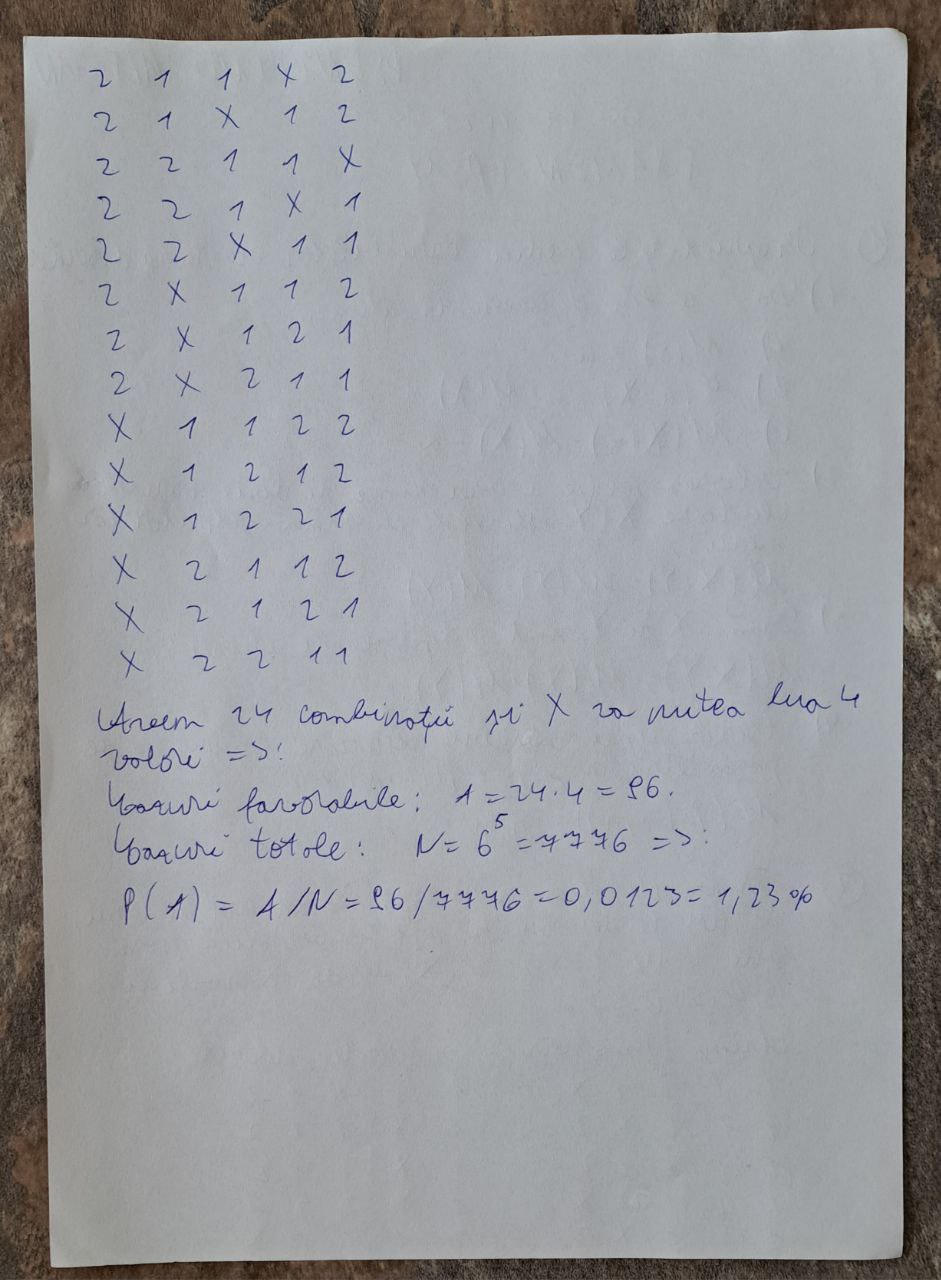 2 1 1 X 2
2 1 X 1 2
2 2 1 1 X
2 2 1 X 1
2 2 X 1 1
2 X 1 1 2
2 X 1 2 1
2 X 2 1 1
X 1 1 2 2
X 1 2 1 2
X 1 2 2 1
X 2 1 1 2
X 2 1 2 1
X 2 2 1 1
Avem 24 combinații și X va putea lua 4
valori =>:
Cazuri favorabile: A = 24·4 = 96.
Cazuri totale: N = 6⁵ = 7776 =>:
P(A) = A/N = 96/7776 = 0,0123 = 1,23%